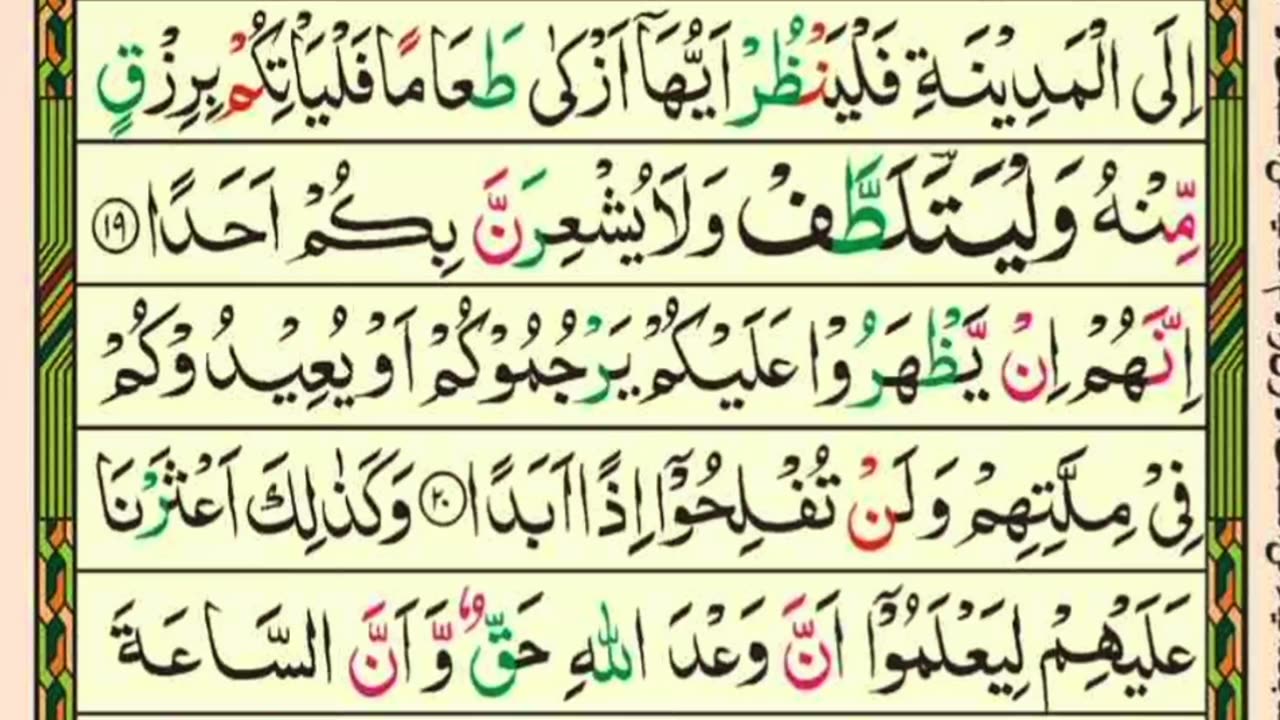 اِلَى الْمَدِيْنَةِ فَلْيَنْظُرْ اَيُّهَاۤ اَزْكٰى طَعَامًا فَلْيَاْتِكُمْ بِرِزْقٍ
مِّنْهُ وَلْيَتَلَطَّفْ وَلَا يُشْعِرَنَّ بِكُمْ اَحَدًا ۝۱۹
اِنَّهُمْ اِنْ يَّظْهَرُوْا عَلَيْكُمْ يَرْجُمُوْكُمْ اَوْ يُعِيْدُوْكُمْ
فِيْ مِلَّتِهِمْ وَلَنْ تُفْلِحُوْۤا اِذًا اَبَدًا ۝۲۰ وَكَذٰلِكَ اَعْثَرْنَا
عَلَيْهِمْ لِيَعْلَمُوْۤا اَنَّ وَعْدَ اللّٰهِ حَقٌّ وَّاَنَّ السَّاعَةَ